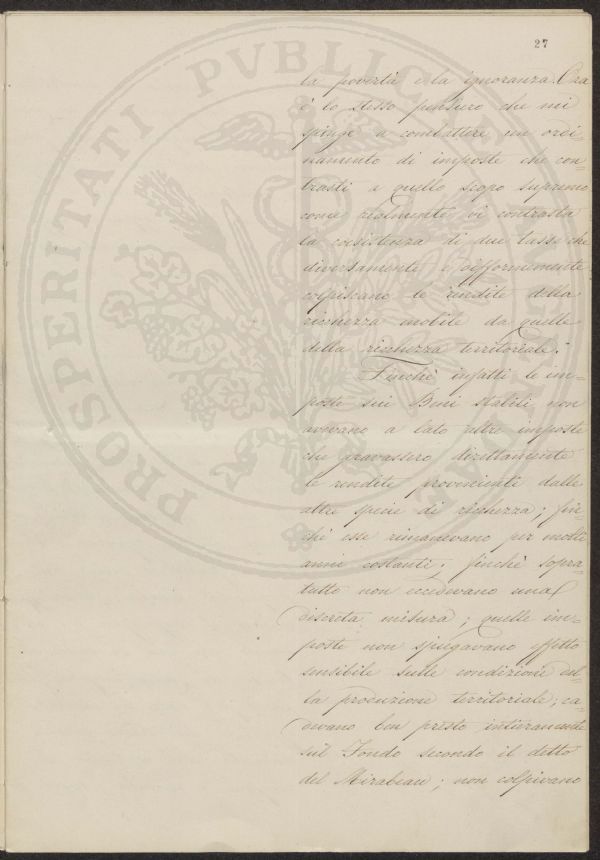 27
la povertà e la ignoranza. Ora
è lo stesso pensiero che mi
spinge a combattere un ordi=
namento di imposte che con=
trasti a quello scopo supremo
come realmente vi contrasta
la coesistenza di due tasse che
diversamente e difformemente
colpiscano le rendite della
ricchezza mobile da quelle
della ricchezza territoriale.
Finchè infatti le im=
poste sui Beni stabili non
avevano a lato altre imposte
che gravassero direttamente
le rendite provenienti dalle
altre specie di ricchezza; fin=
chè esse rimanevano per molti
anni costanti; finchè sopra=
tutto non eccedevano una
discreta misura; quelle im=
poste non spiegavano effetto
sensibile sulle condizioni del=
la produzione territoriale; ca=
devano ben presto intieramente
sul Fondo secondo il detto
del Mirabeau; non colpivano
PROSPERITATI PVBLICAE